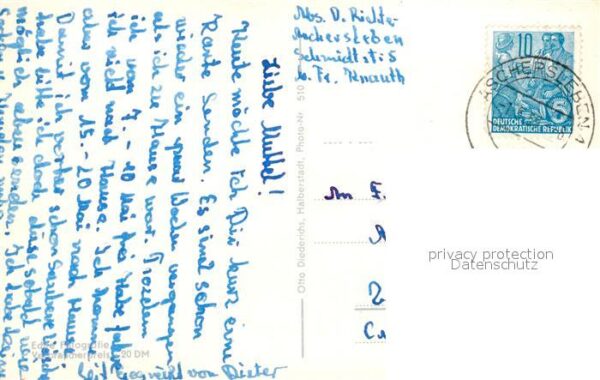 Liebe Mutter!
Heute möchte ich Dir kurz eine
Karte senden. Es sind schon
wieder ein paar Wochen vergangen
als ich zu Hause war. Trozdem
ich vom 7. - 10 Mai frei habe fahre
ich nicht nach Hause. Ich komme
aber vom 15. - 20 Mai nach Hause
Damit ich vorher schon saubere Wäsche
habe bitte ich doch diese sobald wie
möglich abzusenden. Ich habe keine
gegrüßt von Dieter
Echte Fotografie
Verbraucherpreis -,20 DM
Otto Diederichs, Halberstadt, Photo-Nr. 510
Abs. D. Richter
Aschersleben
Schmidtstr. 5
b. Fr. Knauth
10
5
DEUTSCHE
DEMOKRATISCHE REPUBLIK
ASCHERSLEBEN 1
An F
privacy protection
Datenschutz